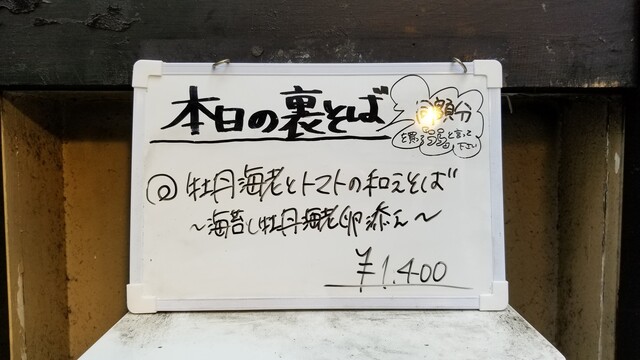 本日の裏そば
同額分
を買う 言って下さい
◎牡丹海老とトマトの和えそば
～海苔と牡丹海老卵添え～
¥1.400